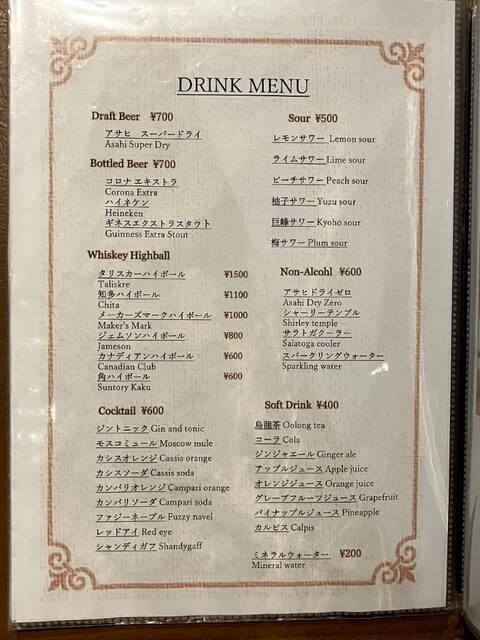 DRINK MENU
Draft Beer ¥700
アサヒ スーパードライ
Asahi Super Dry
Bottled Beer ¥700
コロナ エキストラ
Corona Extra
ハイネケン
Heineken
ギネスエクストラスタウト
Guinness Extra Stout
Whiskey Highball
タリスカーハイボール ¥1500
Taliskre
知多ハイボール ¥1100
Chita
メーカーズマークハイボール ¥1000
Maker's Mark
ジェムソンハイボール ¥800
Jameson
カナディアンハイボール ¥600
Canadian Club
角ハイボール ¥600
Suntory Kaku
Cocktail ¥600
ジントニック Gin and tonic
モスコミュール Moscow mule
カシスオレンジ Cassis orange
カシスソーダ Cassis soda
カンパリオレンジ Campari orange
カンパリソーダ Campari soda
ファジーネーブル Fuzzy navel
レッドアイ Red eye
シャンディガフ Shandygaff
Sour ¥500
レモンサワー Lemon sour
ライムサワー Lime sour
ピーチサワー Peach sour
柚子サワー Yuzu sour
巨峰サワー Kyoho sour
梅サワー Plum sour
Non-Alcohl ¥600
アサヒドライゼロ
Asahi Dry Zero
シャーリーテンプル
Shirley temple
サラトガクーラー
Salatoga cooler
スパークリングウォーター
Sparkling water
Soft Drink ¥400
烏龍茶 Oolong tea
コーラ Cola
ジンジャエール Ginger ale
アップルジュース Apple juice
オレンジジュース Orange juice
グレープフルーツジュース Grapefruit
パイナップルジュース Pineapple
カルピス Calpis
ミネラルウォーター ¥200
Mineral water